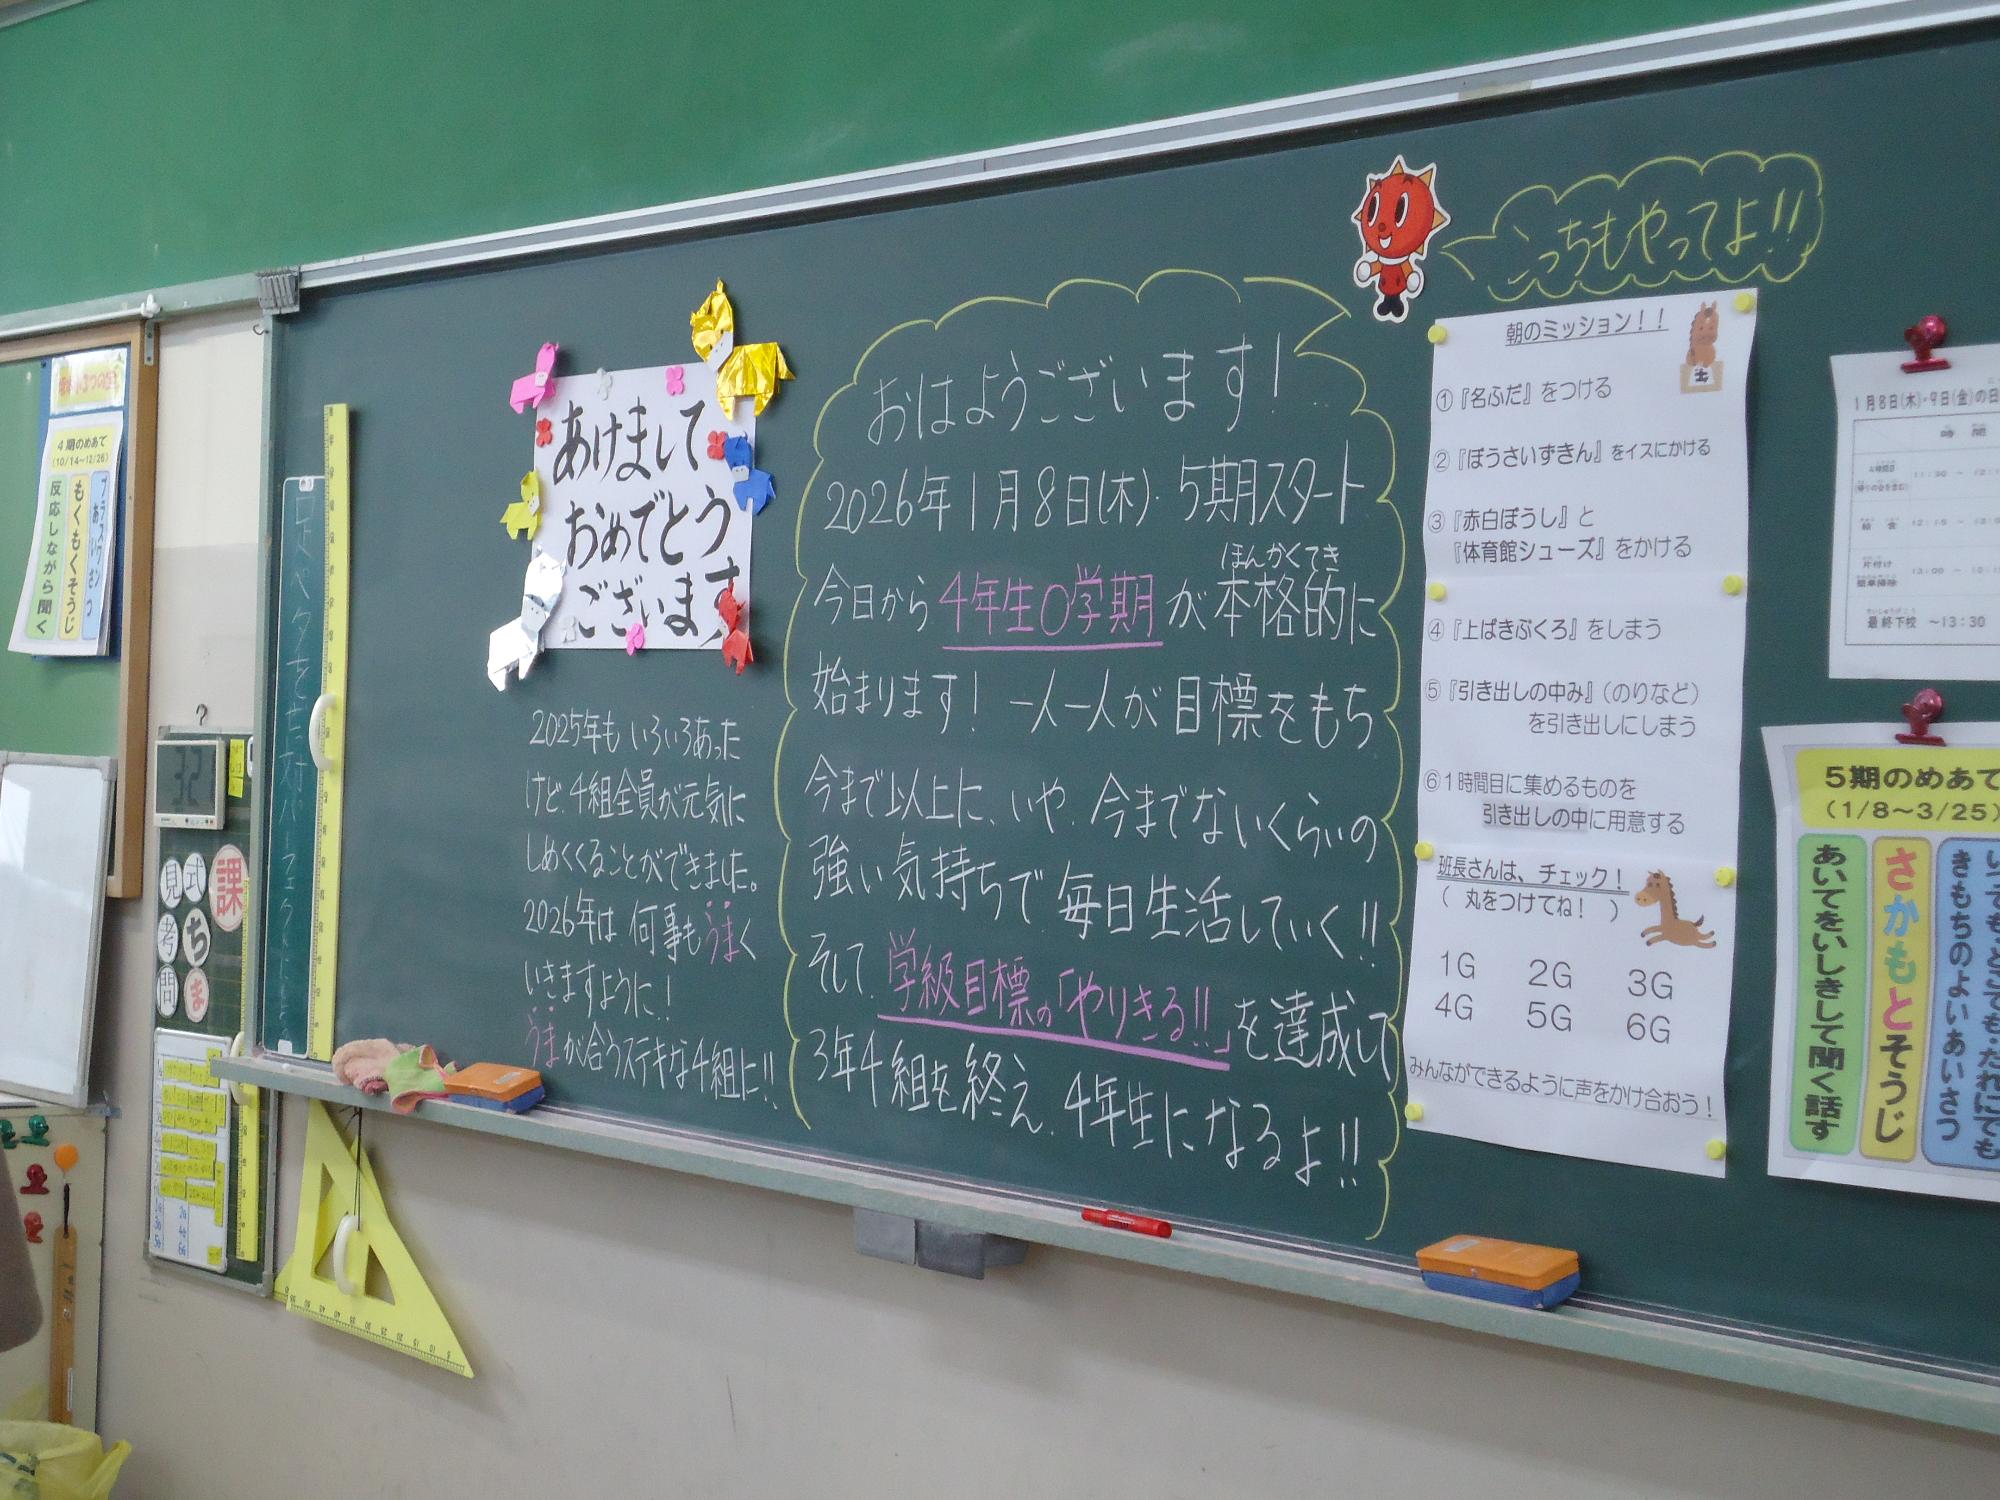 4期のめあて
(10/14~12/26)
もくもくそうじ
反応しながら聞く
32
課
ち
ま
式
見
考
問
あけまして
おめでとう
ございます
2025年も いろいろあった
けど、4組全員が元気に
しめくくることができました。
2026年は 何事もうまく
いきますように!
うまが合うステキな4組に!!
おはようございます!
2026年1月8日(木)・5期スタート
ほんかくてき
今日から4年生0学期が本格的に
始まります! 一人一人が目標をもち
今まで以上に、いや、今までないくらいの
強い気持ちで、毎日生活していく!!
そして、学級目標の「やりきる!!」を達成して
3年4組を終え、4年生になるよ!!
こっちもやってよ!!
朝のミッション!!
①『名ふだ』をつける
②『ぼうさいずきん』をイスにかける
③『赤白ぼうし』と
『体育館シューズ』をかける
④『上ばきぶくろ』をしまう
⑤『引き出しの中み』(のりなど)
を引き出しにしまう
⑥1時間目に集めるものを
引き出しの中に用意する
班長さんは、チェック!
( 丸をつけてね! )
1G 2G 3G
4G 5G 6G
みんなができるように声をかけ合おう!
1月8日(木)・9日(金)の日
時 間
給 食
片付け
簡単掃除
最終下校 ~13:30
5期のめあて
(1/8~3/25)
いつでも・どこでも・だれにでも
きもちのよいあいさつ
さかもとそうじ
あいてをいしきして聞く話す